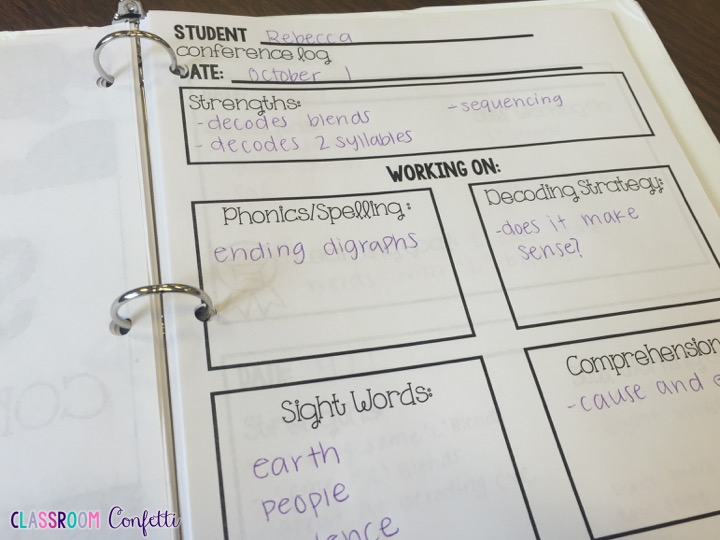 STUDENT Rebecca
conference log
DATE: October 1
Strengths:
-decodes blends
-sequencing
-decodes 2 syllables
WORKING ON:
Phonics/Spelling:
ending digraphs
Decoding Strategy:
-does it make
sense?
Sight Words:
earth
people
Comprehension
-cause and
CLASSROOM Confetti